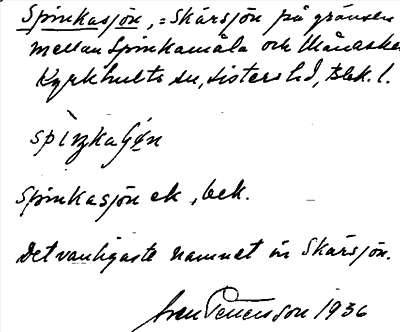 Spinkasjön, = Skärsjön på gränsen
mellan Spinkamåla och Månaske
Kyrkhults sn, Listers hd, Blek. l.
Spinkasjön ek, bek.
Det vanligaste namnet är Skärsjön.
Sven Petersson 1936